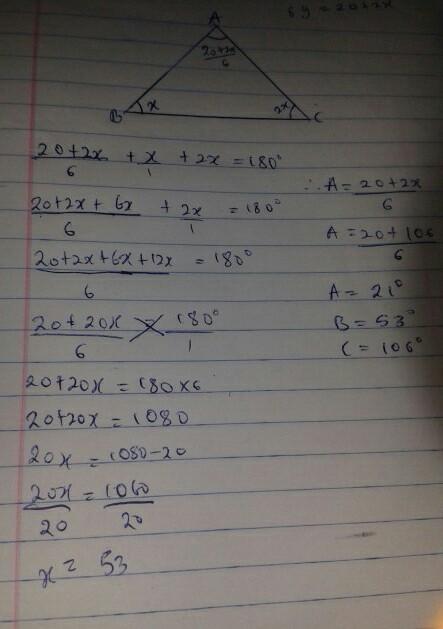 6y = 20+2x
A
20+2x/6
B x 2x C
20+2x/6 + x/1 + 2x = 180°
20+2x+6x/6 + 2x/1 = 180°
20+2x+6x+12x/6 = 180°
20+20x/6 = 180°/1
20+20x = 180x6
20+20x = 1080
20x = 1080-20
20x/20 = 1060/20
x = 53
∴ A = 20+2x/6
A = 20+106/6
A = 21°
B = 53°
C = 106°